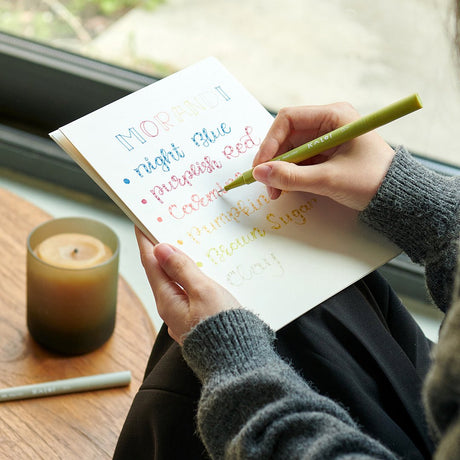 MORANDI
night Blue
purplish Red
Carmine
Pumpkin
Brown Sugar
Clay